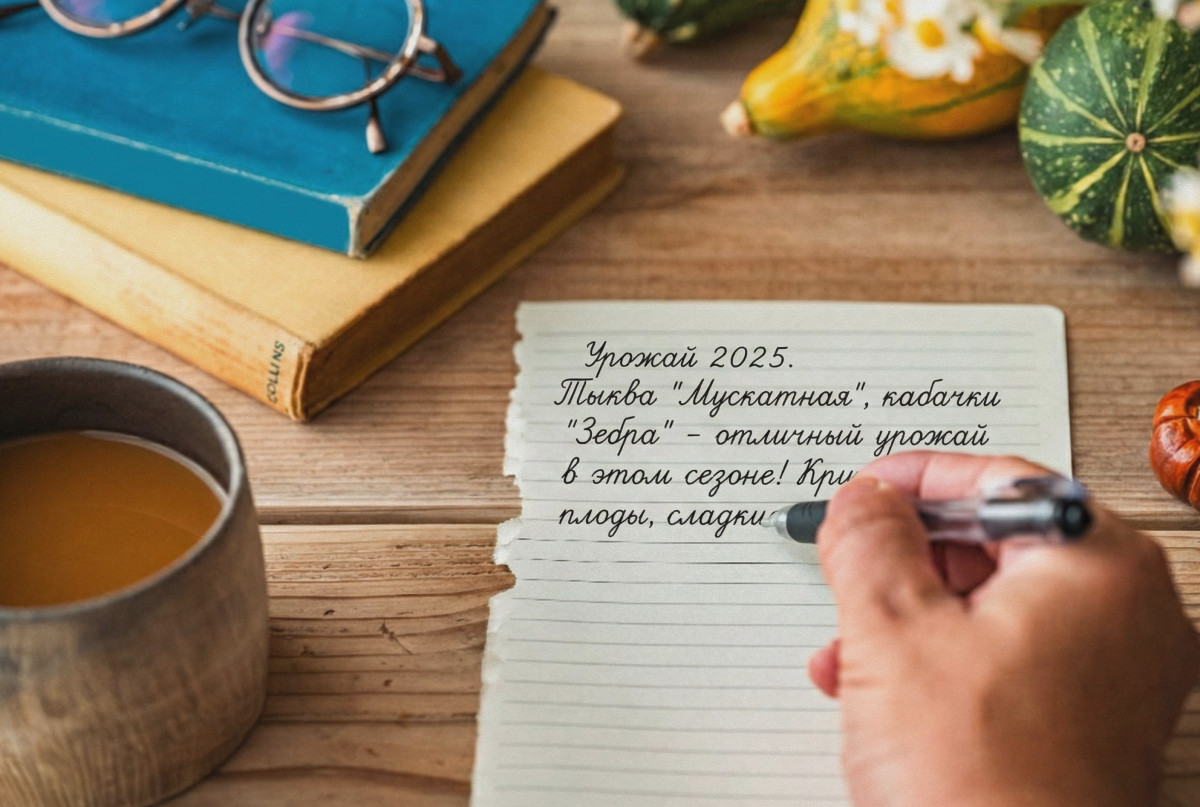 COLLINS
Урожай 2025.
Тыква "Мускатная", кабачки
"Зебра" - отличный урожай
в этом сезоне!
плоды,